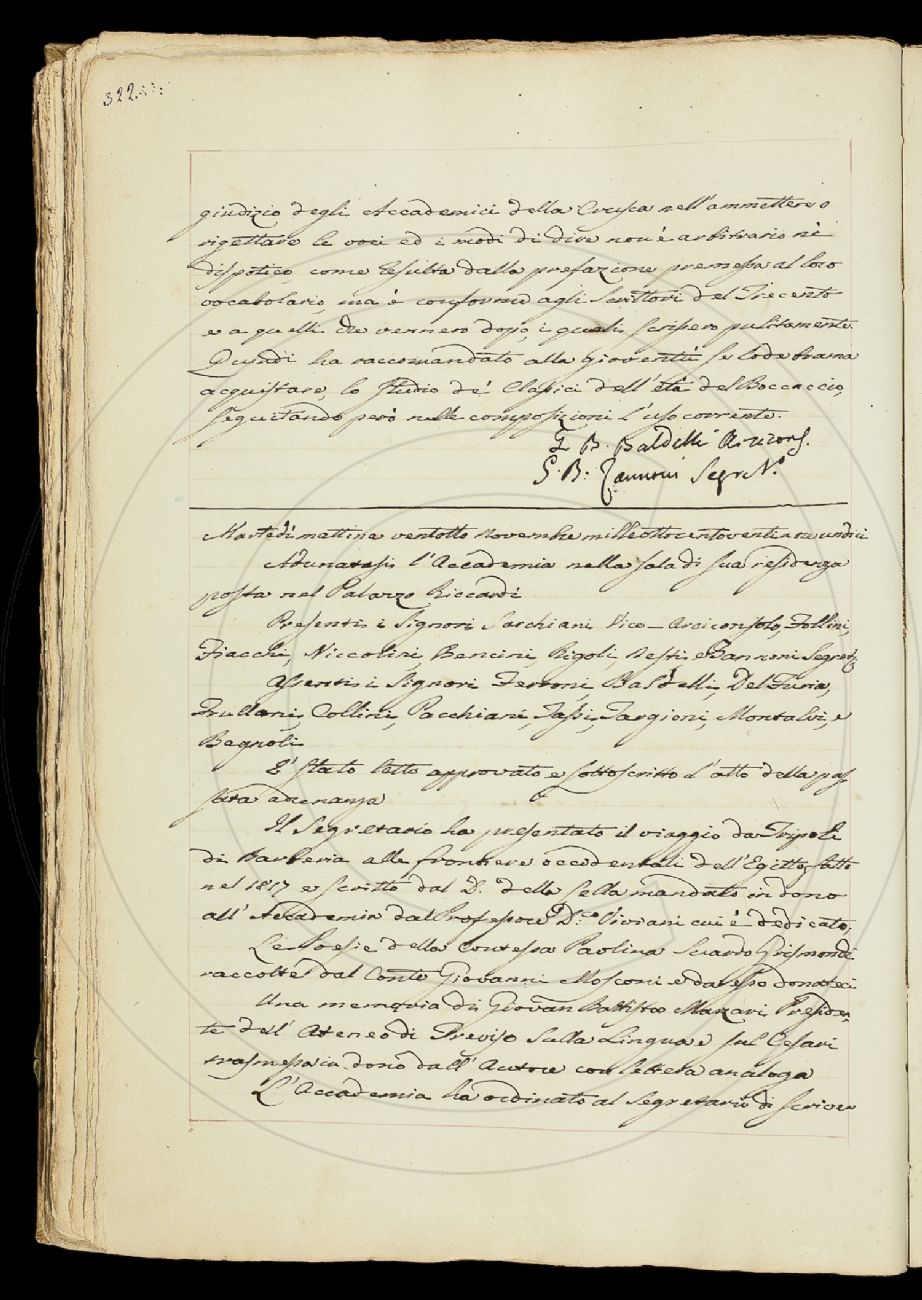 322.
giudizio degli Accademici della Crusca nell'ammettere o
rigettare le voci ed i modi di dire non è arbitrario nè
dispotico, come resulta dalla prefazione premessa al loro
vocabolario, ma è conforme agli Scrittori del Trecento
e a quelli che vennero dopo, i quali scrissero pulitamente.
Quindi ha raccomandato alla gioventù se lode brama
acquistare, lo studio de' Classici dell'età del Boccaccio,
seguitando però nelle composizioni l'uso corrente.
G. B. Baldelli Arcicons.
G. B. Zannoni Segret.º
Martedì mattina ventotto Novembre milleottocentoventi a ore undici
Adunatasi l'Accademia nella sala di sua residenza
posta nel Palazzo Riccardi
Presenti i Signori Sarchiani Vice-Arciconsolo, Follini,
Fiacchi, Niccolini, Bencini, Rigoli, Nesti, e Zannoni Segret.
Assenti i Signori Ferroni, Baldelli, Del Furia,
Frullani, Collini, Pacchiani, Tassi, Targioni, Montalvi, e
Bagnoli
E' stato letto approvato e sottoscritto l'atto della pas
sata adunanza
Il Segretario ha presentato il viaggio da Tripoli
di Barberia alle frontiere occidentali dell'Egitto fatto
nel 1817 e scritto dal D. della Cella mandato in dono
all'Accademia dal Professore D. Viviani cui è dedicato,
Le Poesie della Contessa Paolina Secardo Grismondi
raccolte dal Conte Giovanni Mosconi e da esso donateci
Una memoria di Giovan Battista Marzari Presiden
te dell'Ateneo di Treviso Sulla Lingua e sul Cesari
trasmessa in dono dall'Autore con lettera analoga
L'Accademia ha ordinato al Segretario di scriver